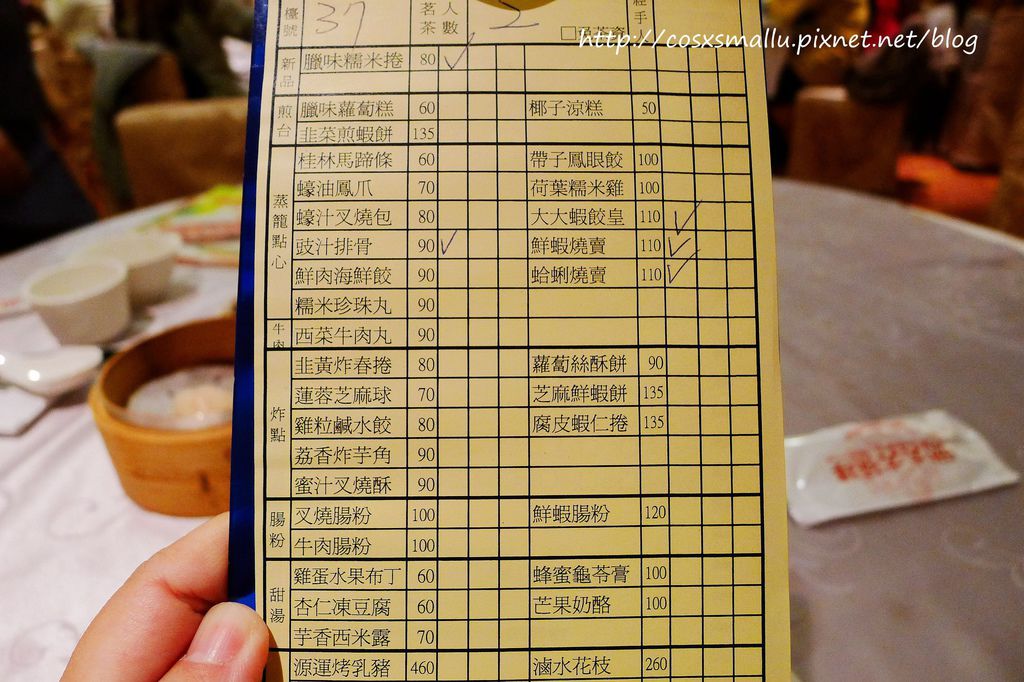 檯號 37 茗茶 人數 2
http://cosxsmallu.pixnet.net/blog
新品 臘味糯米捲 80 ✓
煎台 臘味蘿蔔糕 60 椰子涼糕 50
韭菜煎蝦餅 135
蒸籠點心 桂林馬蹄條 60 帶子鳳眼餃 100
蠔油鳳爪 70 荷葉糯米雞 100
蠔汁叉燒包 80 大大蝦餃皇 110 ✓
豉汁排骨 90 ✓ 鮮蝦燒賣 110 ✓
鮮肉海鮮餃 90 蛤蜊燒賣 110 ✓
糯米珍珠丸 90
牛肉 西菜牛肉丸 90
炸點 韭黃炸春捲 80 蘿蔔絲酥餅 90
蓮蓉芝麻球 70 芝麻鮮蝦餅 135
雞粒鹹水餃 80 腐皮蝦仁捲 135
荔香炸芋角 90
蜜汁叉燒酥 90
腸粉 叉燒腸粉 100 鮮蝦腸粉 120
牛肉腸粉 100
甜湯 雞蛋水果布丁 60 蜂蜜龜苓膏 100
杏仁凍豆腐 60 芒果奶酪 100
芋香西米露 70
源運烤乳豬 460 滷水花枝 260